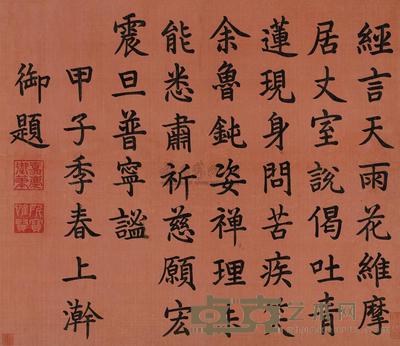 經言天雨花維摩
居丈室說偈吐青
蓮現身問苦疾笑
余魯鈍姿禅理未
能悉肅祈慈願宏
震旦普寧謐
甲子季春上澣
御題